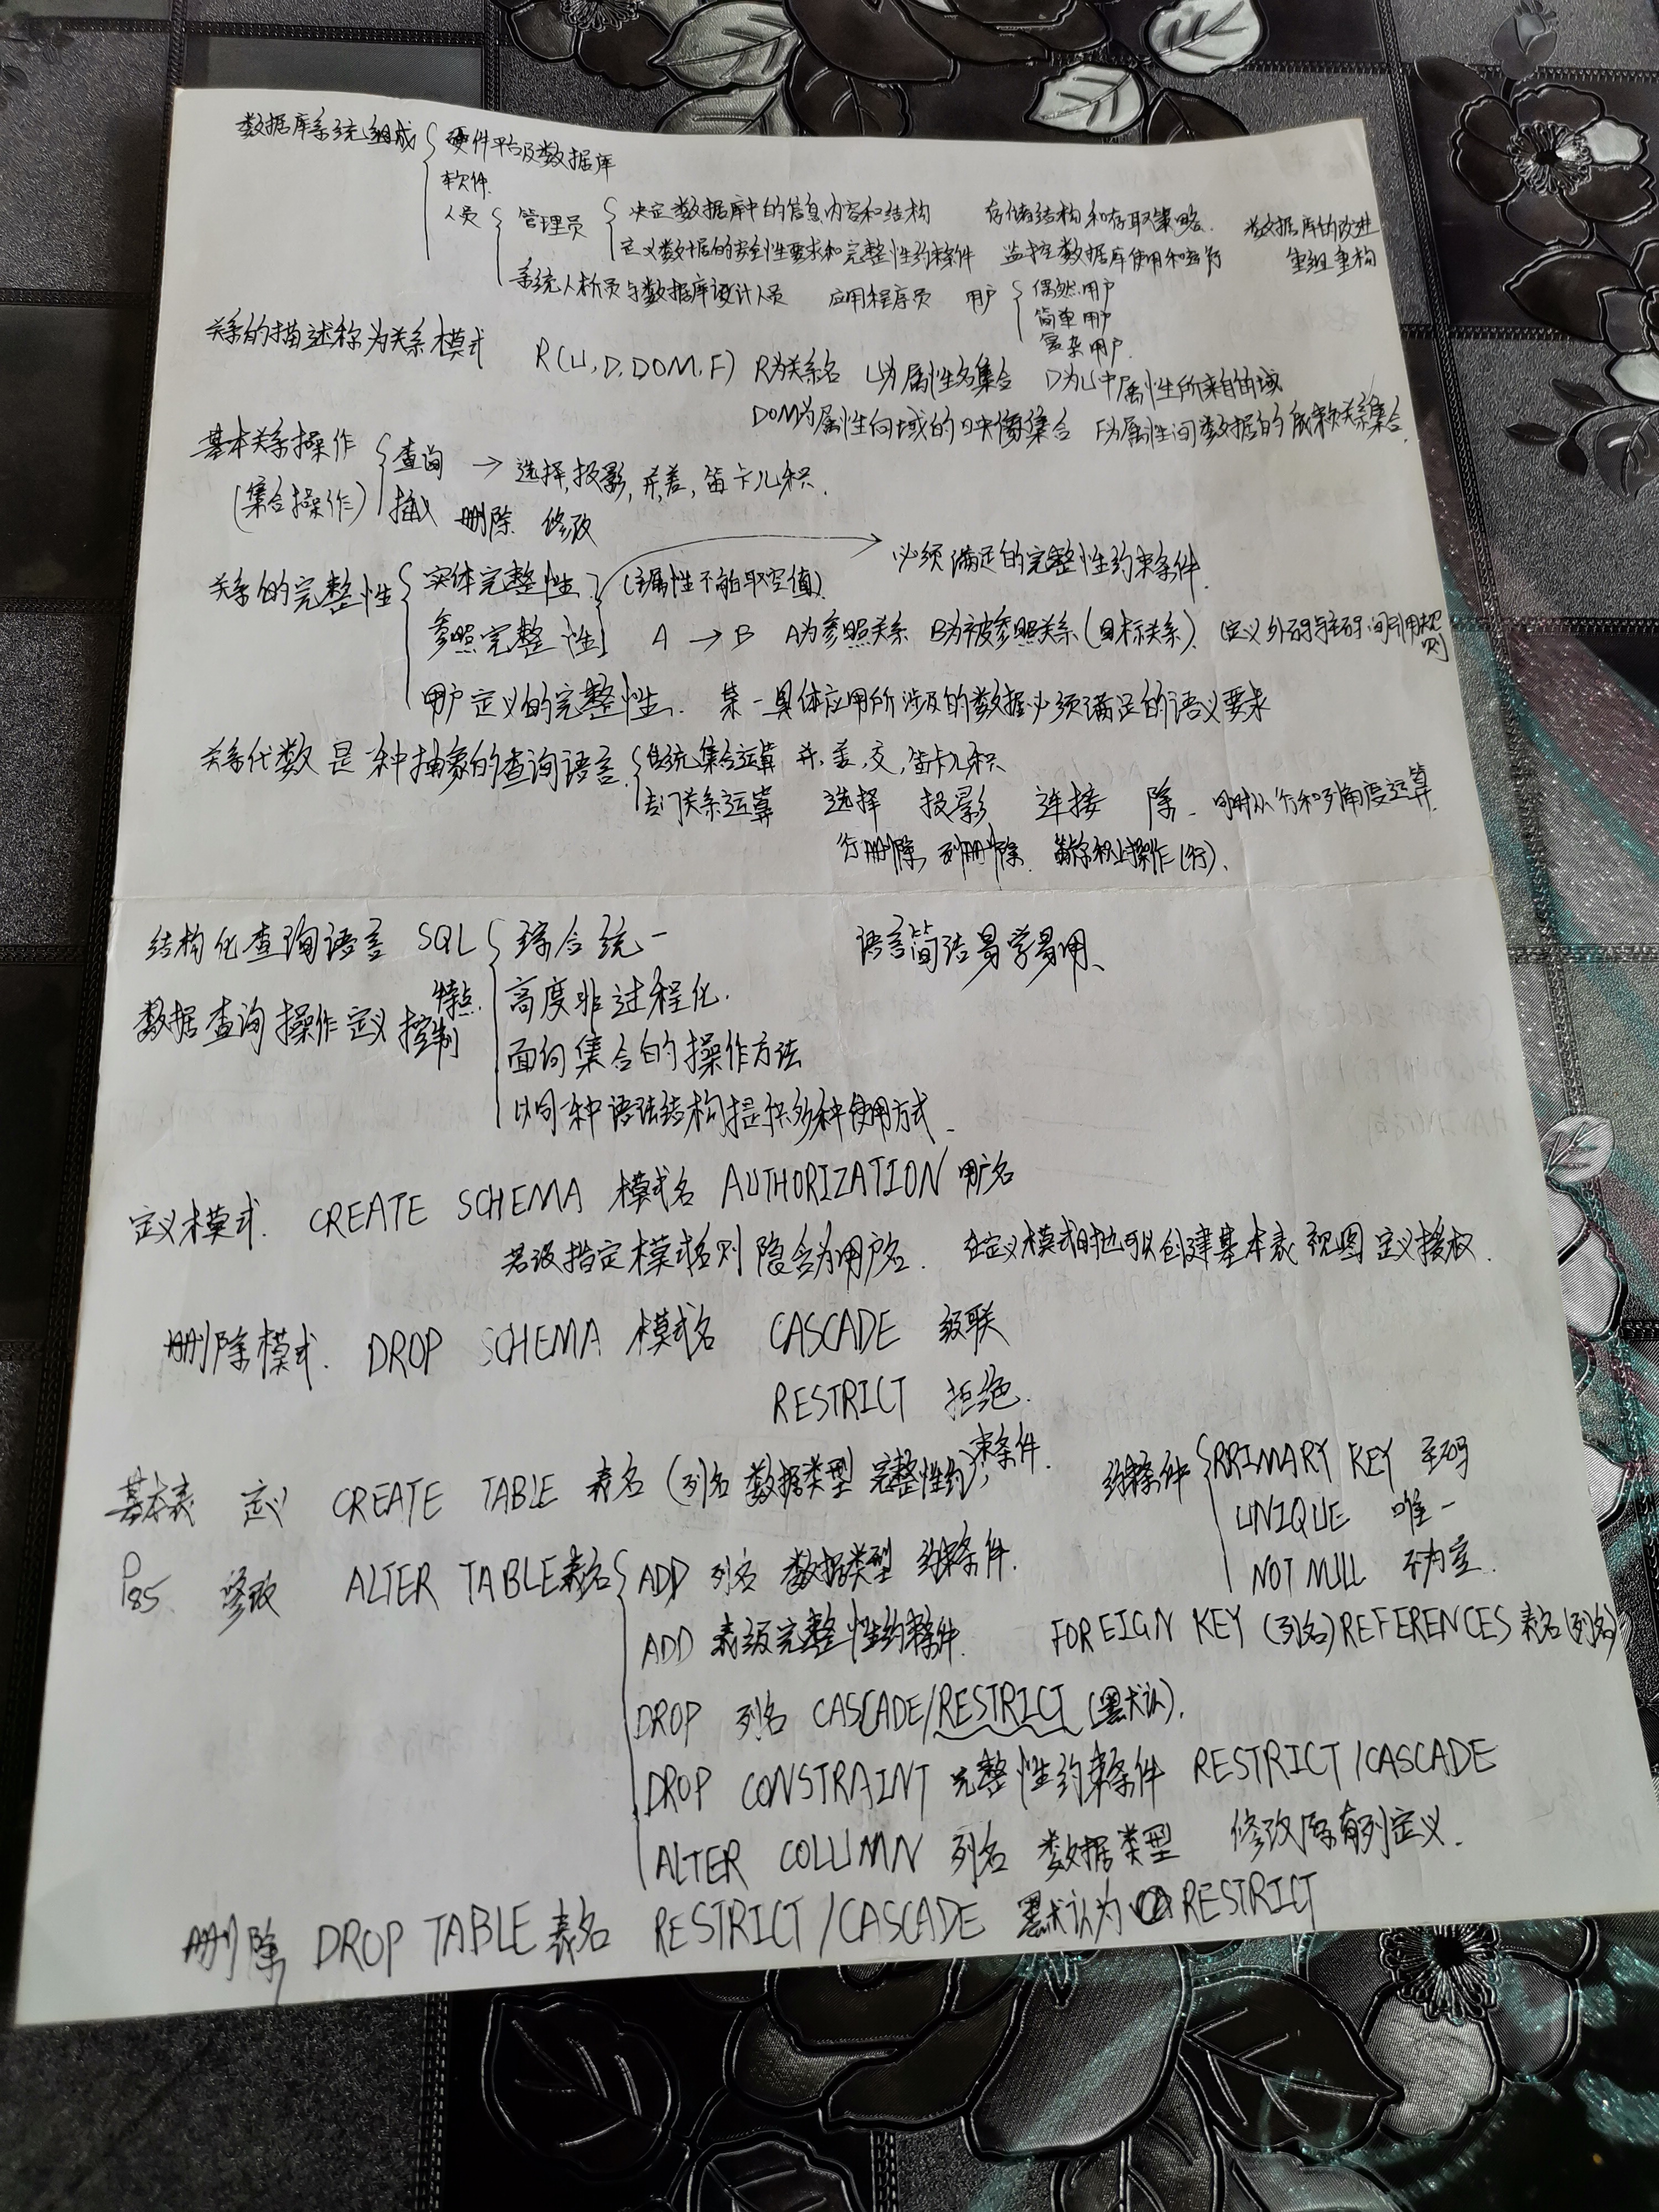 数据库系统组成 硬件平台及数据库
软件
人员 管理员 决定数据库中的信息内容和结构 存储结构和存取策略. 数据库的改进
定义数据的安全性要求和完整性约束条件 监控数据库使用和运行 重组重构
系统分析员与数据库设计人员 应用程序员 用户 偶然用户
简单用户
复杂用户.
关系的描述称为关系模式 R(U,D,DOM,F) R为关系名 U为属性名集合 D为U中属性所来自的域
DOM为属性向域的映像集合 F为属性间数据的依赖关系集合.
基本关系操作 查询 → 选择,投影,并,差,笛卡儿积.
(集合操作) 插入 删除 修改
关系的完整性 实体完整性 (主属性不能取空值) 必须满足的完整性约束条件.
参照完整性 A → B A为参照关系 B为被参照关系(目标关系). (定义外码与主码间引用规则
用户定义的完整性. 某一具体应用所涉及的数据必须满足的语义要求
关系代数是一种抽象的查询语言 传统集合运算 并,差,交,笛卡儿积
专门关系运算 选择 投影 连接 除. 同时从行和列角度运算.
行删除 列删除. 操作(行).
结构化查询语言 SQL 综合统一 语言简洁易学易用、
数据查询操作定义控制 特点. 高度非过程化.
面向集合的操作方法
以同一种语法结构提供多种使用方式.
定义模式. CREATE SCHEMA 模式名 AUTHORIZATION 用户名
若没指定模式名则隐含为用户名. 在定义模式时也可以创建基本表 视图 定义授权.
删除模式. DROP SCHEMA 模式名 CASCADE 级联
RESTRICT 拒绝.
基本表 定义 CREATE TABLE 表名 (列名 数据类型 完整性约束条件. 约束条件 PRIMARY KEY 主码
UNIQUE 唯一
P85. 修改 ALTER TABLE 表名 ADD 列名 数据类型 约束条件. NOT NULL 不为空.
ADD 表级完整性约束条件. FOREIGN KEY (列名) REFERENCES 表名(列名)
DROP 列名 CASCADE/RESTRICT (默认).
DROP CONSTRAINT 完整性约束条件 RESTRICT/CASCADE
ALTER COLUMN 列名 数据类型 修改原有列定义.
删除 DROP TABLE 表名 RESTRICT/CASCADE 默认为 RESTRICT